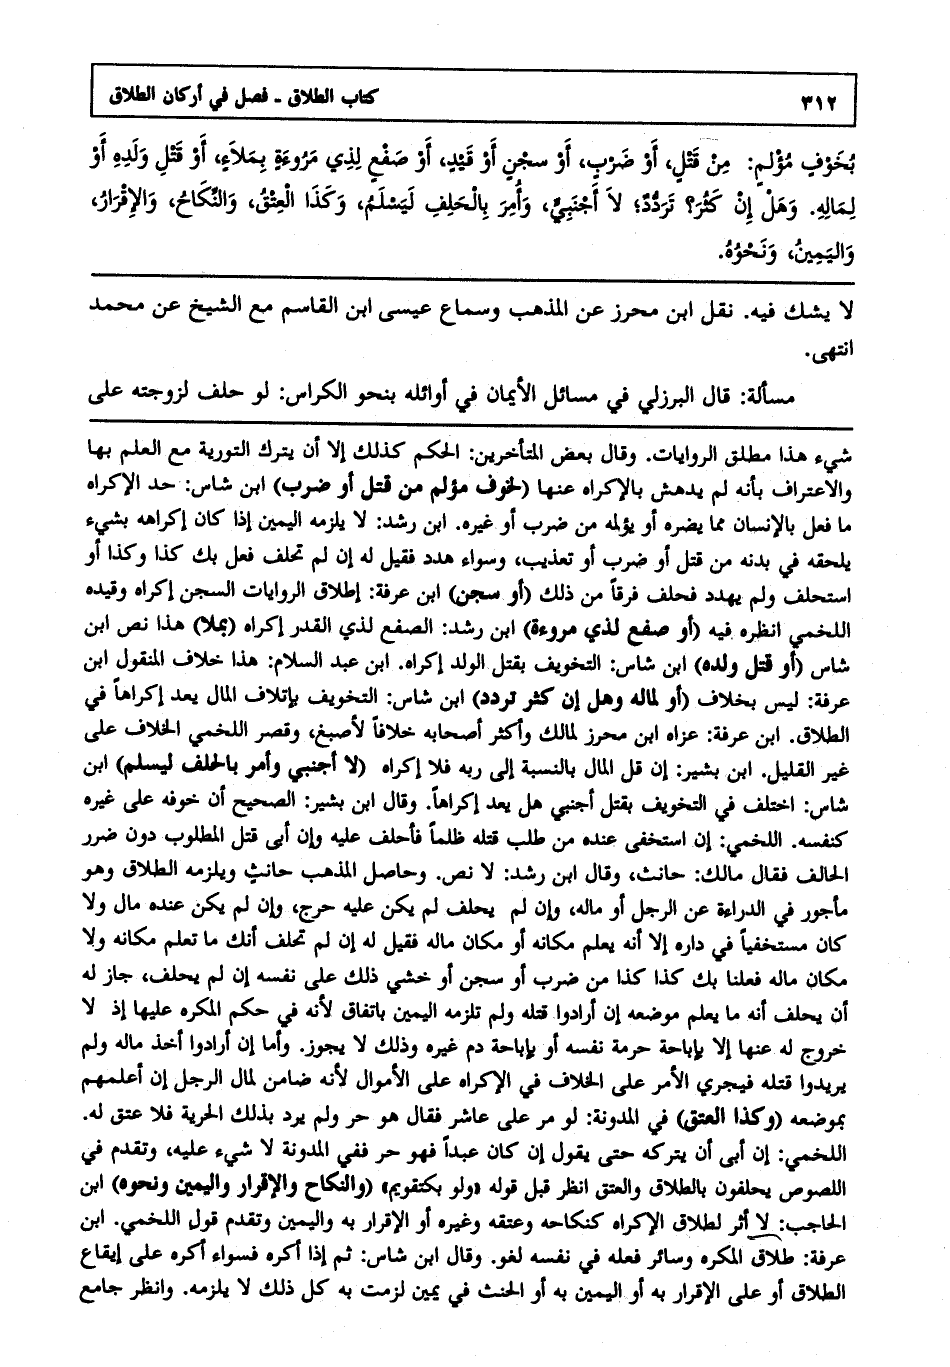 ٣١٢ كتاب الطلاق ـ فصل في أركان الطلاق
بُخَوْفِ مُؤْلمٍ: مِنْ قَتْلٍ، أَوْ ضَرْبٍ، أَوْ سجْنٍ أَوْ قَيْدٍ، أَوْ صَفْعٍ لِذِي مَرُوءَةٍ بِمَلَاءٍ، أَوْ قَتْلِ وَلَدِهِ أَوْ
لِمَالِهِ. وَهَلْ إِنْ كَثُرَ؟ تَرَدُّدٌ؛ لاَ أَجْنَبِيٍّ، وَأُمِرَ بِالْحَلِفِ لَيَسْلَمُ، وَكَذَا الْعِتْقُ، وَالنِّكَاحُ، وَالإِقْرَارُ،
وَاليَمِينُ، وَنَحْوُهُ.
لا يشك فيه. نقل ابن محرز عن المذهب وسماع عيسى ابن القاسم مع الشيخ عن محمد
انتهى.
مسألة: قال البرزلي في مسائل الأيمان في أوائله بنحو الكراس: لو حلف لزوجته على
شيء هذا مطلق الروايات. وقال بعض المتأخرين: الحكم كذلك إلا أن يترك التورية مع العلم بها
والاعتراف بأنه لم يدهش بالإكراه عنها (لخوف مؤلم من قتل أو ضرب) ابن شاس: حد الإكراه
ما فعل بالإنسان مما يضره أو يؤلمه من ضرب أو غيره. ابن رشد: لا يلزمه اليمين إذا كان إكراهه بشيء
يلحقه في بدنه من قتل أو ضرب أو تعذيب، وسواء هدد فقيل له إن لم تحلف فعل بك كذا وكذا أو
استحلف ولم يهدد فحلف فرقاً من ذلك (أو سجن) ابن عرفة: إطلاق الروايات السجن إكراه وقيده
اللخمي انظره فيه (أو صفع لذي مروءة) ابن رشد: الصفع لذي القدر إكراه (بملا) هذا نص ابن
شاس (أو قتل ولده) ابن شاس: التخويف بقتل الولد إكراه. ابن عبد السلام: هذا خلاف المنقول ابن
عرفة: ليس بخلاف (أو لماله وهل إن كثر تردد) ابن شاس: التخويف بإتلاف المال يعد إكراهاً في
الطلاق. ابن عرفة: عزاه ابن محرز لمالك وأكثر أصحابه خلافاً لأصبغ، وقصر اللخمي الخلاف على
غير القليل. ابن بشير: إن قل المال بالنسبة إلى ربه فلا إكراه (لا أجنبي وأمر بالحلف ليسلم) ابن
شاس: اختلف في التخويف بقتل أجنبي هل يعد إكراهاً. وقال ابن بشير: الصحيح أن خوفه على غيره
كنفسه. اللخمي: إن استخفى عنده من طلب قتله ظلماً فأحلف عليه وإن أبى قتل المطلوب دون ضرر
الحالف فقال مالك: حانث، وقال ابن رشد: لا نص. وحاصل المذهب حانث ويلزمه الطلاق وهو
مأجور في الدراءة عن الرجل أو ماله، وإن لم يحلف لم يكن عليه حرج، وإن لم يكن عنده مال ولا
كان مستخفياً في داره إلا أنه يعلم مكانه أو مكان ماله فقيل له إن لم تحلف أنك ما تعلم مكانه ولا
مكان ماله فعلنا بك كذا كذا من ضرب أو سجن أو خشي ذلك على نفسه إن لم يحلف، جاز له
أن يحلف أنه ما يعلم موضعه إن أرادوا قتله ولم تلزمه اليمين باتفاق لأنه في حكم المكره عليها إذ لا
خروج له عنها إلا بإباحة حرمة نفسه أو بإباحة دم غيره وذلك لا يجوز. وأما إن أرادوا أخذ ماله ولم
يريدوا قتله فيجري الأمر على الخلاف في الإكراه على الأموال لأنه ضامن لمال الرجل إن أعلمهم
بموضعه (وكذا العتق) في المدونة: لو مر على عاشر فقال هو حر ولم يرد بذلك الحرية فلا عتق له.
اللخمي: إن أبى أن يتركه حتى يقول إن كان عبداً فهو حر ففي المدونة لا شيء عليه، وتقدم في
اللصوص يحلفون بالطلاق والعتق انظر قبل قوله «ولو بكتقويم» (والنكاح والإقرار واليمين ونحوه) ابن
الحاجب: لا أثر لطلاق الإكراه كنكاحه وعتقه وغيره أو الإقرار به واليمين وتقدم قول اللخمي. ابن
عرفة: طلاق المكره وسائر فعله في نفسه لغو. وقال ابن شاس: ثم إذا أكره فسواء أكره على إيقاع
الطلاق أو على الإقرار به أو اليمين به أو الحنث في يمين لزمت به كل ذلك لا يلزمه. وانظر جامع